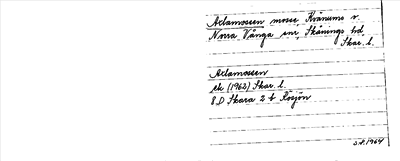 Axlamossen mosse Kvänums v.
Norra Vånga snr, Skånings hd,
Skar. l.
Axlamossen
ek (1962) Skar. l.
8 D Skara 2 b Rösjön
S.A. 1964